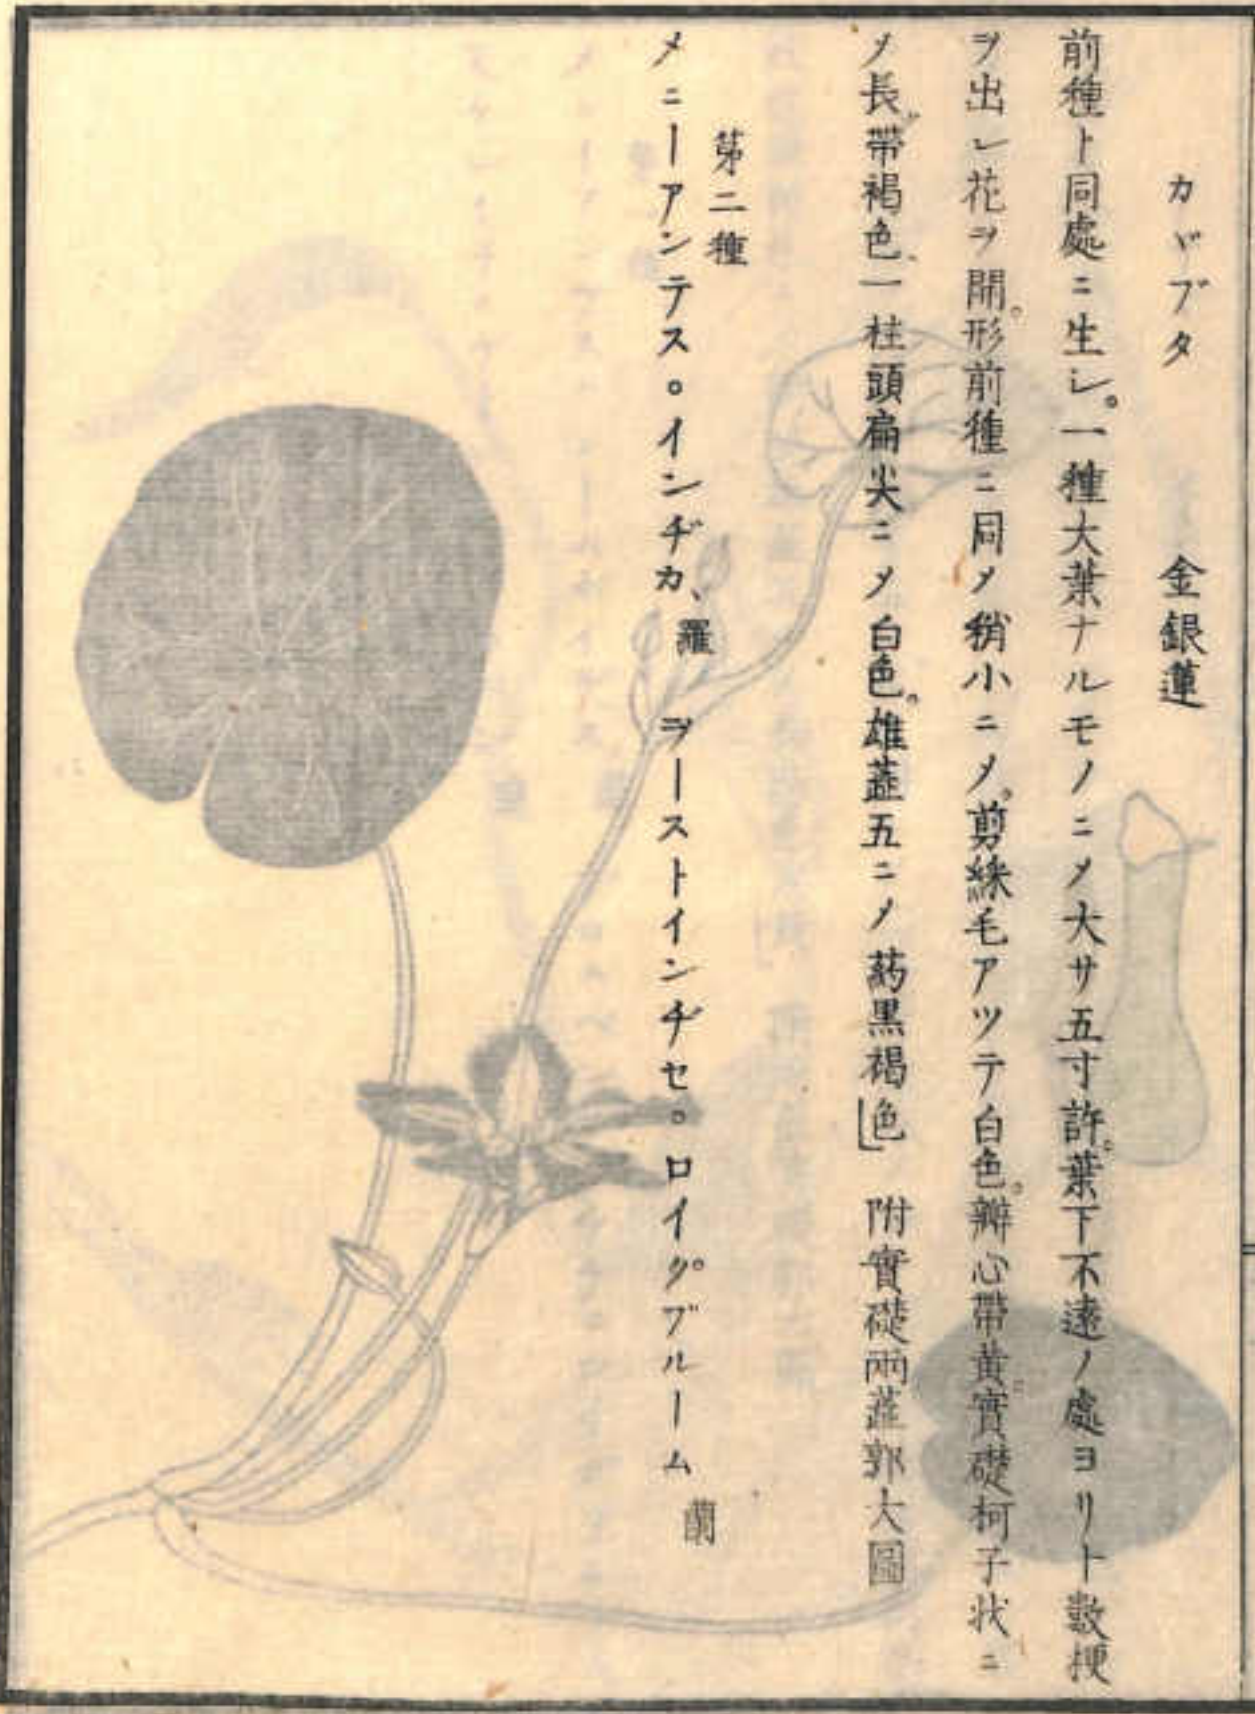 カヾブタ　金銀蓮
前種ト同處ニ生レ。一種大葉ナルモノニメ大サ五寸許。葉下不遠ノ處ヨリト數梗
ヲ出レ花ヲ開。形前種ニ同メ稍小ニメ。剪綵毛アツテ白色。瓣心帶黃。實礎柯子状ニ
メ長。帶褐色、一柱頭扁尖ニメ白色。雄蕋五ニメ葯黒褐色」　附實礎兩蕋郭大圖
第二種
メニーアンテス。インヂカ、羅　ヲーストインヂセ。ロイグブルーム　蘭